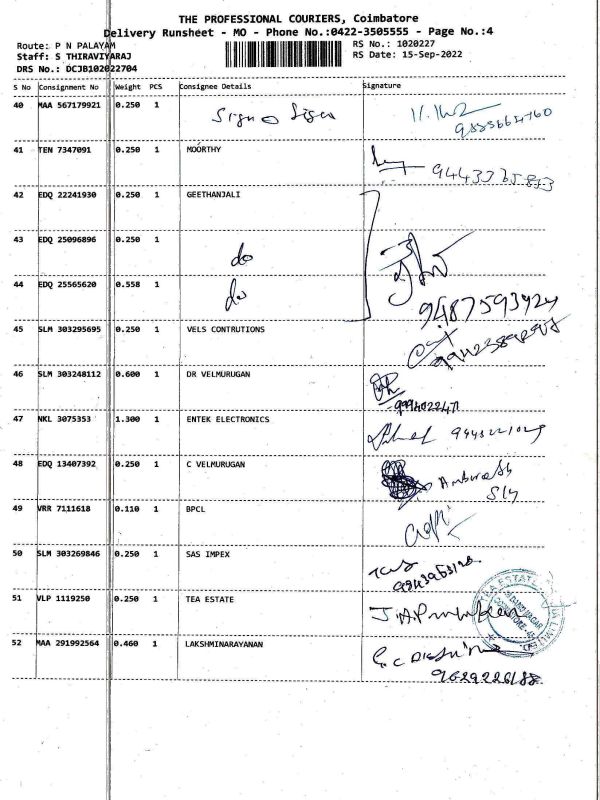 THE PROFESSIONAL COURIERS, Coimbatore
Delivery Runsheet - MO - Phone No.:0422-3505555 - Page No.:4
Route: P N PALAYAM
RS No.: 1020227
Staff: S THIRAVIYARAJ
RS Date: 15-Sep-2022
DRS No.: DCJB102022704
S No Consignment No Weight PCS Consignee Details Signature
40 MAA 567179921 0.250 1 Sign Sign
41 TEN 7347091 0.250 1 MOORTHY
42 EDQ 22241930 0.250 1 GEETHANJALI
43 EDQ 25096896 0.250 1 do
44 EDQ 25565620 0.558 1 do
45 SLM 303295695 0.250 1 VELS CONTRUTIONS
46 SLM 303248112 0.600 1 DR VELMURUGAN
47 NKL 3075353 1.300 1 ENTEK ELECTRONICS
48 EDQ 13407392 0.250 1 C VELMURUGAN
49 VRR 7111618 0.110 1 BPCL
50 SLM 303269846 0.250 1 SAS IMPEX
51 VLP 1119250 0.250 1 TEA ESTATE
52 MAA 291992564 0.460 1 LAKSHMINARAYANAN
9629226188